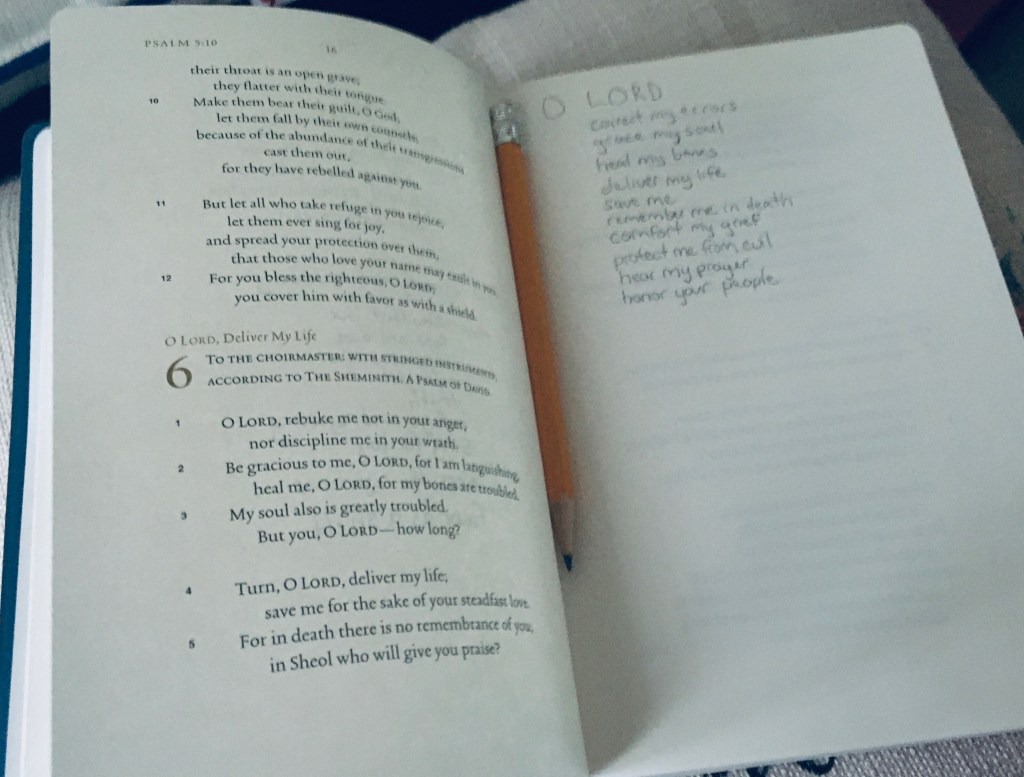 PSALM 5:10
16
their throat is an open grave;
they flatter with their tongue.
10 Make them bear their guilt, O God;
let them fall by their own counsels;
because of the abundance of their transgressions
cast them out,
for they have rebelled against you.
11 But let all who take refuge in you rejoice;
let them ever sing for joy,
and spread your protection over them,
that those who love your name may exult in you.
12 For you bless the righteous, O LORD;
you cover him with favor as with a shield.
O LORD, Deliver My Life
6 TO THE CHOIRMASTER: WITH STRINGED INSTRUMENTS;
ACCORDING TO THE SHEMINITH. A PSALM OF DAVID.
1 O LORD, rebuke me not in your anger,
nor discipline me in your wrath.
2 Be gracious to me, O LORD, for I am languishing;
heal me, O LORD, for my bones are troubled.
3 My soul also is greatly troubled.
But you, O LORD—how long?
4 Turn, O LORD, deliver my life;
save me for the sake of your steadfast love.
5 For in death there is no remembrance of you;
in Sheol who will give you praise?
O LORD
correct my errors
grace my soul
heal my bones
deliver my life
save me
remember me in death
comfort my grief
protect me from evil
hear my prayer
honor your people